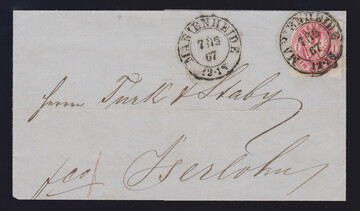 MARIENHEIDE
7 12
67
12-1*
MARIENHEIDE
7 12
67
12-1*
Herrn Turk & Staby
fco Iserlohn